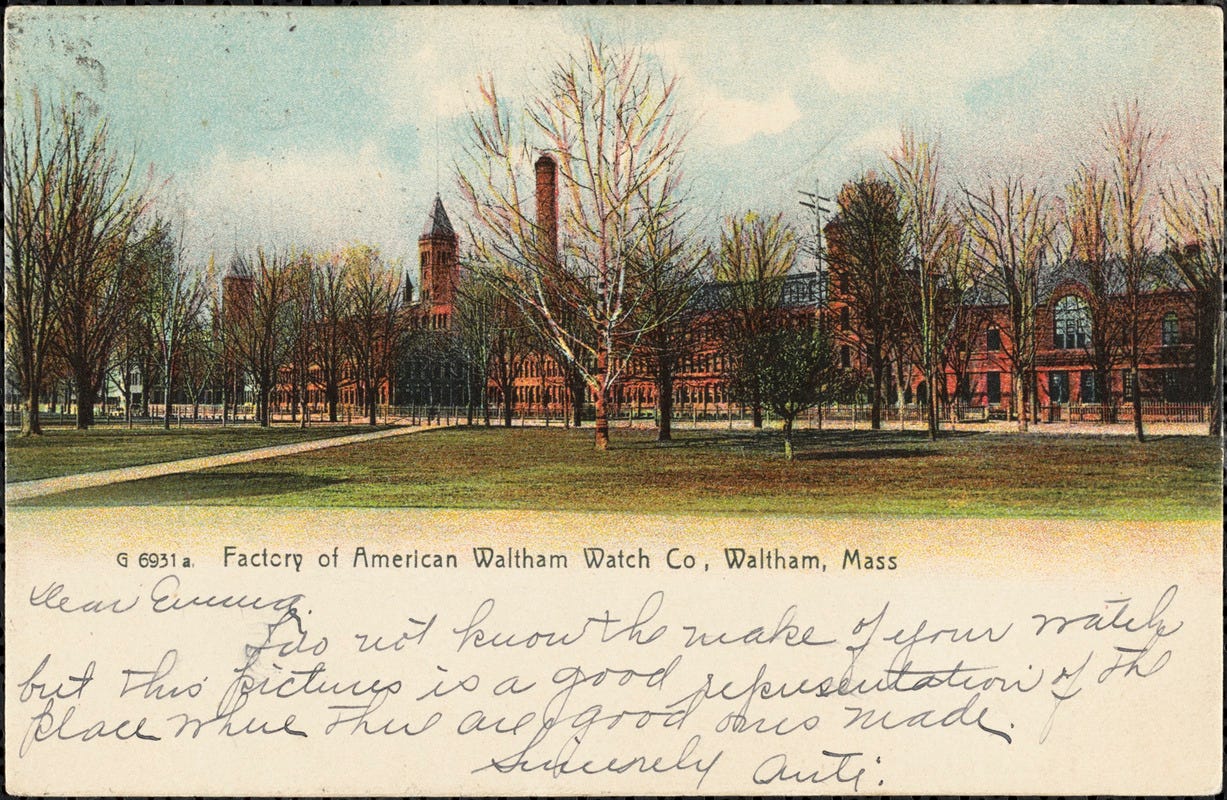 G 6931 a. Factory of American Waltham Watch Co, Waltham, Mass
Dear Emma.
I do not know the make of your watch
but this pictures is a good representation of the
place where there are good ones made.
Sincerely Anti.